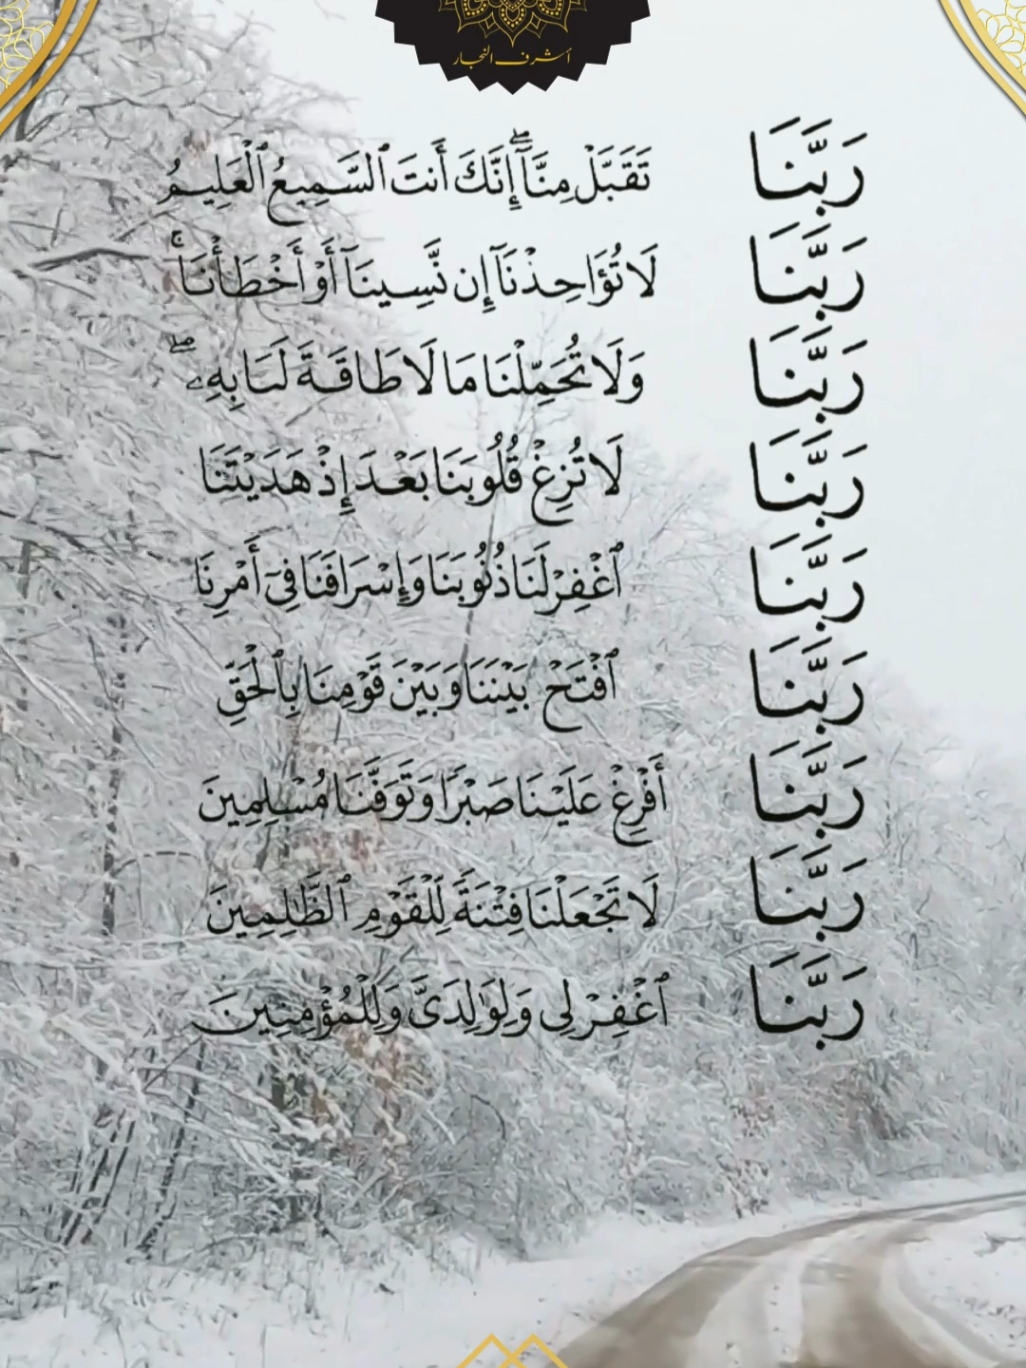 أشرف النجار
رَبَّنَا تَقَبَّلْ مِنَّآ ۖ إِنَّكَ أَنتَ ٱلسَّمِيعُ ٱلْعَلِيمُ
رَبَّنَا لَا تُؤَاحِذْنَآ إِن نَّسِينَآ أَوْ أَخْطَأْنَا ۚ
رَبَّنَا وَلَا تُحَمِّلْنَا مَا لَا طَاقَةَ لَنَا بِهِۦ ۖ
رَبَّنَا لَا تُزِغْ قُلُوبَنَا بَعْدَ إِذْ هَدَيْتَنَا
رَبَّنَا ٱغْفِرْ لَنَا ذُنُوبَنَا وَإِسْرَافَنَا فِىٓ أَمْرِنَا
رَبَّنَا ٱفْتَحْ بَيْنَنَا وَبَيْنَ قَوْمِنَا بِٱلْحَقِّ
رَبَّنَا أَفْرِغْ عَلَيْنَا صَبْرًا وَتَوَفَّنَا مُسْلِمِينَ
رَبَّنَا لَا تَجْعَلْنَا فِتْنَةً لِّلْقَوْمِ ٱلظَّٰلِمِينَ
رَبَّنَا ٱغْفِرْ لِى وَلِوَٰلِدَىَّ وَلِلْمُؤْمِنِينَ